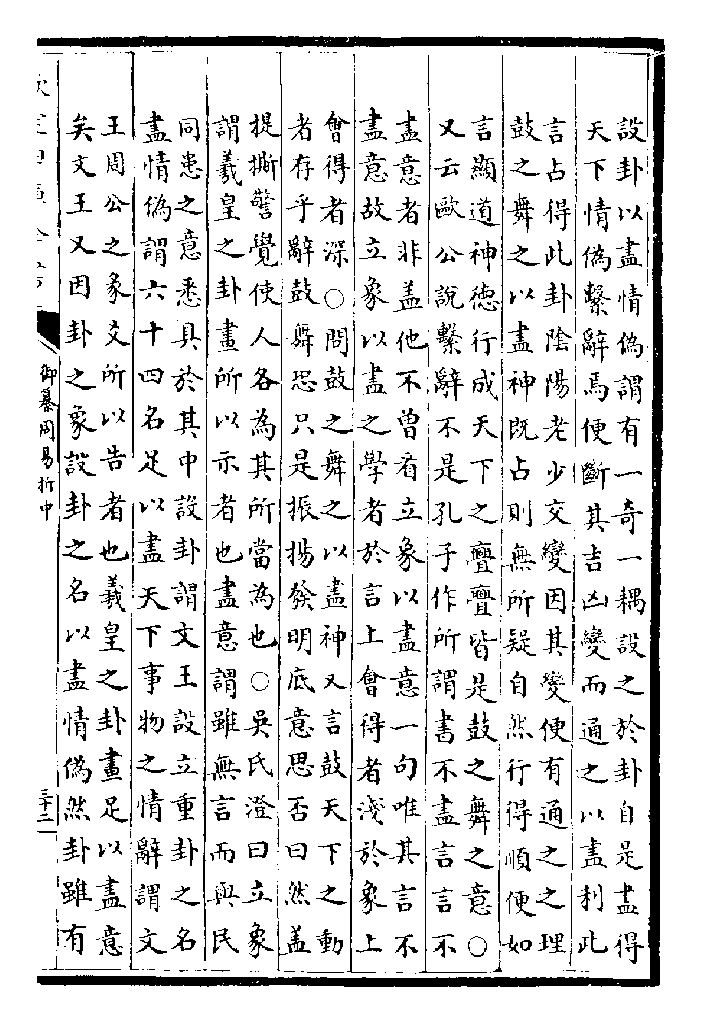 設卦以盡情偽謂有一奇一耦設之於卦自是盡得
天下情偽繫辭焉便斷其吉凶變而通之以盡利此
言占得此卦陰陽老少交變因其變便有通之之理
鼓之舞之以盡神既占則無所疑自然行得順便如
言顯道神德行成天下之亹亹皆是鼓之舞之意○
又云歐公說繫辭不是孔子作所謂書不盡言言不
盡意者非盖他不曾看立象以盡意一句唯其言不
盡意故立象以盡之學者於言上會得者淺於象上
會得者深○問鼓之舞之以盡神又言鼓天下之動
者存乎辭鼓舞恐只是振揚發明底意思否曰然盖
提撕警覺使人各為其所當為也○吳氏澄曰立象
謂羲皇之卦畫所以示者也盡意謂雖無言而與民
同患之意悉具於其中設卦謂文王設立重卦之名
盡情偽謂六十四名足以盡天下事物之情辭謂文
王周公之彖爻所以告者也羲皇之卦畫足以盡意
矣文王又因卦之象設卦之名以盡情偽然卦雖有
御纂周易折中
三十二